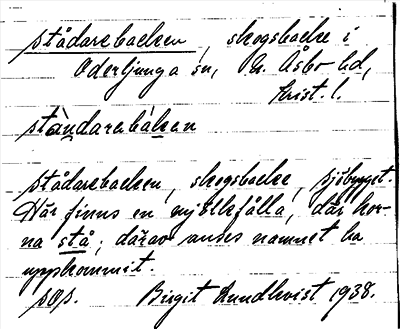 stådarebacken, skogsbacke i
Oderljunga sn, N. Åsbo hd,
Krist. l.
stàndarebáken
stådarebacken, skogsbacke,
Där finns en mjölkfålla, där kor-
na stå; därav anses namnet ha
uppkommit.
sos. Birgit Lundkvist 1938.